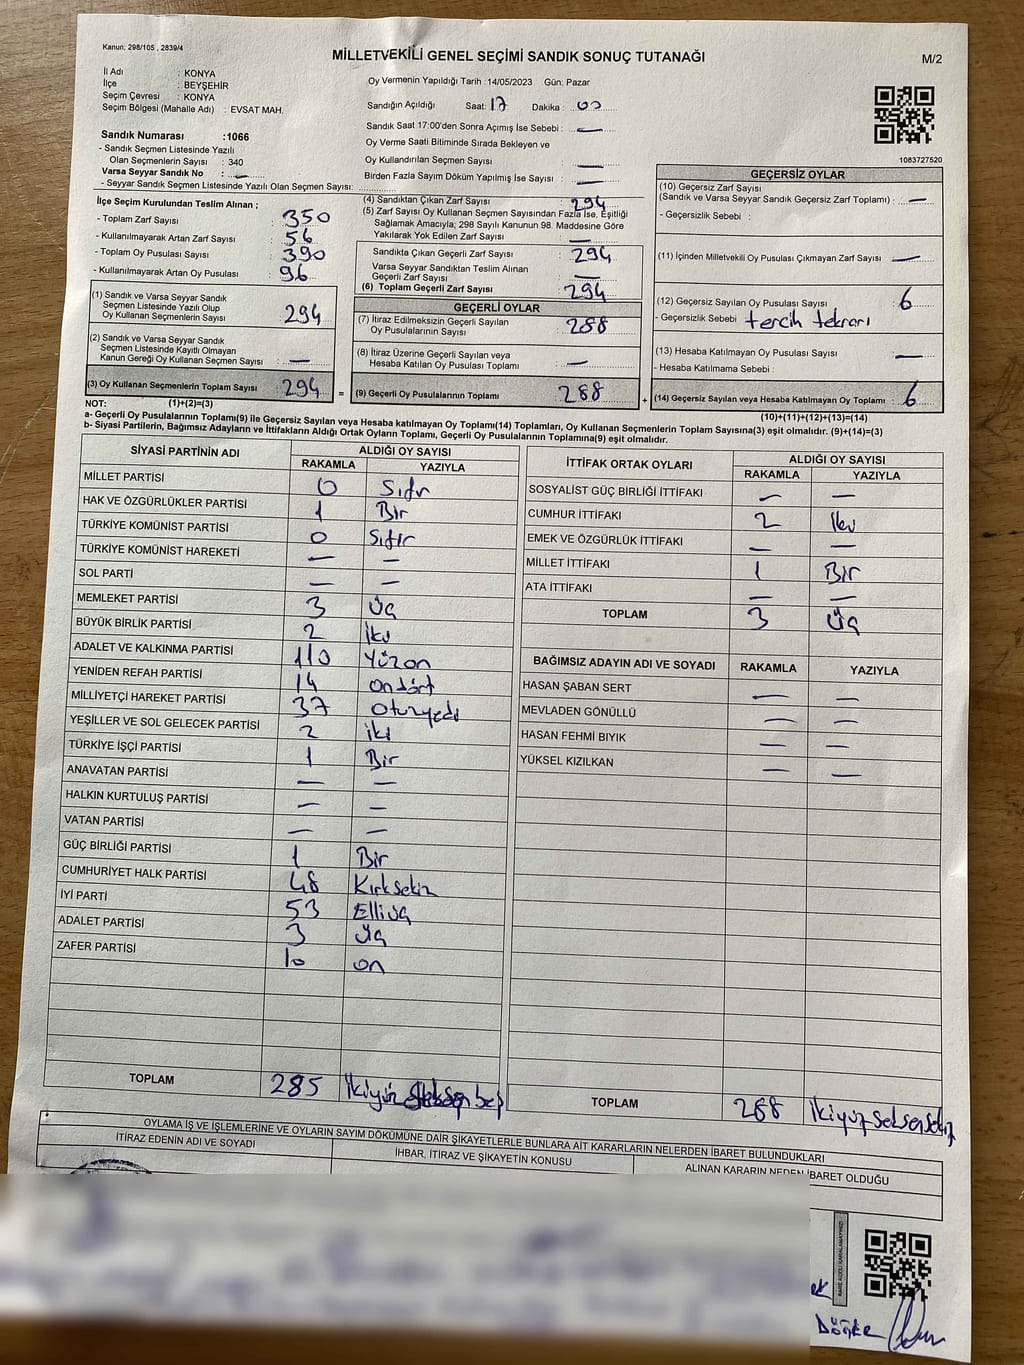 Kanun: 298/105 , 2839/4
MİLLETVEKİLİ GENEL SEÇİMİ SANDIK SONUÇ TUTANAĞI
M/2
İl Adı : KONYA
İlçe : BEYŞEHİR
Seçim Çevresi : KONYA
Seçim Bölgesi (Mahalle Adı) : EVSAT MAH.
Sandık Numarası :1066
- Sandık Seçmen Listesinde Yazılı
Olan Seçmenlerin Sayısı : 340
Varsa Seyyar Sandık No : —
- Seyyar Sandık Seçmen Listesinde Yazılı Olan Seçmen Sayısı:
Oy Vermenin Yapıldığı Tarih : 14/05/2023 Gün: Pazar
Sandığın Açıldığı Saat: 17 Dakika : 00
Sandık Saat 17:00'den Sonra Açımış İse Sebebi : —
Oy Verme Saati Bitiminde Sırada Bekleyen ve
Oy Kullandırılan Seçmen Sayısı —
Birden Fazla Sayım Döküm Yapılmış İse Sayısı : —
1083727520
İlçe Seçim Kurulundan Teslim Alınan ;
- Toplam Zarf Sayısı : 350
- Kullanılmayarak Artan Zarf Sayısı : 56
- Toplam Oy Pusulası Sayısı : 390
- Kullanılmayarak Artan Oy Pusulası : 96
(1) Sandık ve Varsa Seyyar Sandık
Seçmen Listesinde Yazılı Olup
Oy Kullanan Seçmenlerin Sayısı : 294
(2) Sandık ve Varsa Seyyar Sandık
Seçmen Listesinde Kayıtlı Olmayan
Kanun Gereği Oy Kullanan Seçmen Sayısı : —
(3) Oy Kullanan Seçmenlerin Toplam Sayısı : 294 =
(1)+(2)=(3)
(4) Sandıktan Çıkan Zarf Sayısı : 294
(5) Zarf Sayısı Oy Kullanan Seçmen Sayısından Fazla İse, Eşitliği
Sağlamak Amacıyla; 298 Sayılı Kanunun 98. Maddesine Göre
Yakılarak Yok Edilen Zarf Sayısı : —
Sandıkta Çıkan Geçerli Zarf Sayısı : 294
Varsa Seyyar Sandıktan Teslim Alınan
Geçerli Zarf Sayısı : —
(6) Toplam Geçerli Zarf Sayısı : 294
GEÇERLİ OYLAR
(7) İtiraz Edilmeksizin Geçerli Sayılan
Oy Pusulalarının Sayısı : 288
(8) İtiraz Üzerine Geçerli Sayılan veya
Hesaba Katılan Oy Pusulası Toplamı : —
(9) Geçerli Oy Pusulalarının Toplamı : 288 +
GEÇERSİZ OYLAR
(10) Geçersiz Zarf Sayısı
(Sandık ve Varsa Seyyar Sandık Geçersiz Zarf Toplamı) : —
- Geçersizlik Sebebi :
(11) İçinden Milletvekili Oy Pusulası Çıkmayan Zarf Sayısı : —
(12) Geçersiz Sayılan Oy Pusulası Sayısı : 6
- Geçersizlik Sebebi : tercih tekrarı
(13) Hesaba Katılmayan Oy Pusulası Sayısı : —
- Hesaba Katılmama Sebebi :
(14) Geçersiz Sayılan veya Hesaba Katılmayan Oy Toplamı : 6
(10)+(11)+(12)+(13)=(14)
NOT:
a- Geçerli Oy Pusulalarının Toplamı(9) ile Geçersiz Sayılan veya Hesaba katılmayan Oy Toplamı(14) Toplamları, Oy Kullanan Seçmenlerin Toplam Sayısına(3) eşit olmalıdır. (9)+(14)=(3)
b- Siyasi Partilerin, Bağımsız Adayların ve İttifakların Aldığı Ortak Oyların Toplamı, Geçerli Oy Pusulalarının Toplamına(9) eşit olmalıdır.
SİYASİ PARTİNİN ADI
ALDIĞI OY SAYISI
RAKAMLA YAZIYLA
MİLLET PARTİSİ 0 Sıfır
HAK VE ÖZGÜRLÜKLER PARTİSİ 1 Bir
TÜRKİYE KOMÜNİST PARTİSİ 0 Sıfır
TÜRKİYE KOMÜNİST HAREKETİ — —
SOL PARTİ — —
MEMLEKET PARTİSİ 3 Üç
BÜYÜK BİRLİK PARTİSİ 2 İki
ADALET VE KALKINMA PARTİSİ 110 Yüzon
YENİDEN REFAH PARTİSİ 14 ondört
MİLLİYETÇİ HAREKET PARTİSİ 37 otuzyedi
YEŞİLLER VE SOL GELECEK PARTİSİ 2 iki
TÜRKİYE İŞÇİ PARTİSİ 1 Bir
ANAVATAN PARTİSİ — —
HALKIN KURTULUŞ PARTİSİ — —
VATAN PARTİSİ — —
GÜÇ BİRLİĞİ PARTİSİ 1 Bir
CUMHURİYET HALK PARTİSİ 48 Kırksekiz
İYİ PARTİ 53 Elliüç
ADALET PARTİSİ 3 üç
ZAFER PARTİSİ 10 on
TOPLAM 285 İkiyüz seksen beş
İTTİFAK ORTAK OYLARI
ALDIĞI OY SAYISI
RAKAMLA YAZIYLA
SOSYALİST GÜÇ BİRLİĞİ İTTİFAKI — —
CUMHUR İTTİFAKI 2 İki
EMEK VE ÖZGÜRLÜK İTTİFAKI — —
MİLLET İTTİFAKI 1 Bir
ATA İTTİFAKI — —
TOPLAM 3 Üç
BAĞIMSIZ ADAYIN ADI VE SOYADI RAKAMLA YAZIYLA
HASAN ŞABAN SERT — —
MEVLADEN GÖNÜLLÜ — —
HASAN FEHMİ BIYIK — —
YÜKSEL KIZILKAN — —
TOPLAM 288 İkiyüz seksensekiz
OYLAMA İŞ VE İŞLEMLERİNE VE OYLARIN SAYIM DÖKÜMÜNE DAİR ŞİKAYETLERLE BUNLARA AİT KARARLARIN NELERDEN İBARET BULUNDUKLARI
İTİRAZ EDENİN ADI VE SOYADI
İHBAR, İTİRAZ VE ŞİKAYETİN KONUSU
ALINAN KARARIN NEDEN İBARET OLDUĞU
KARE KODU KARALAMAYINIZ!